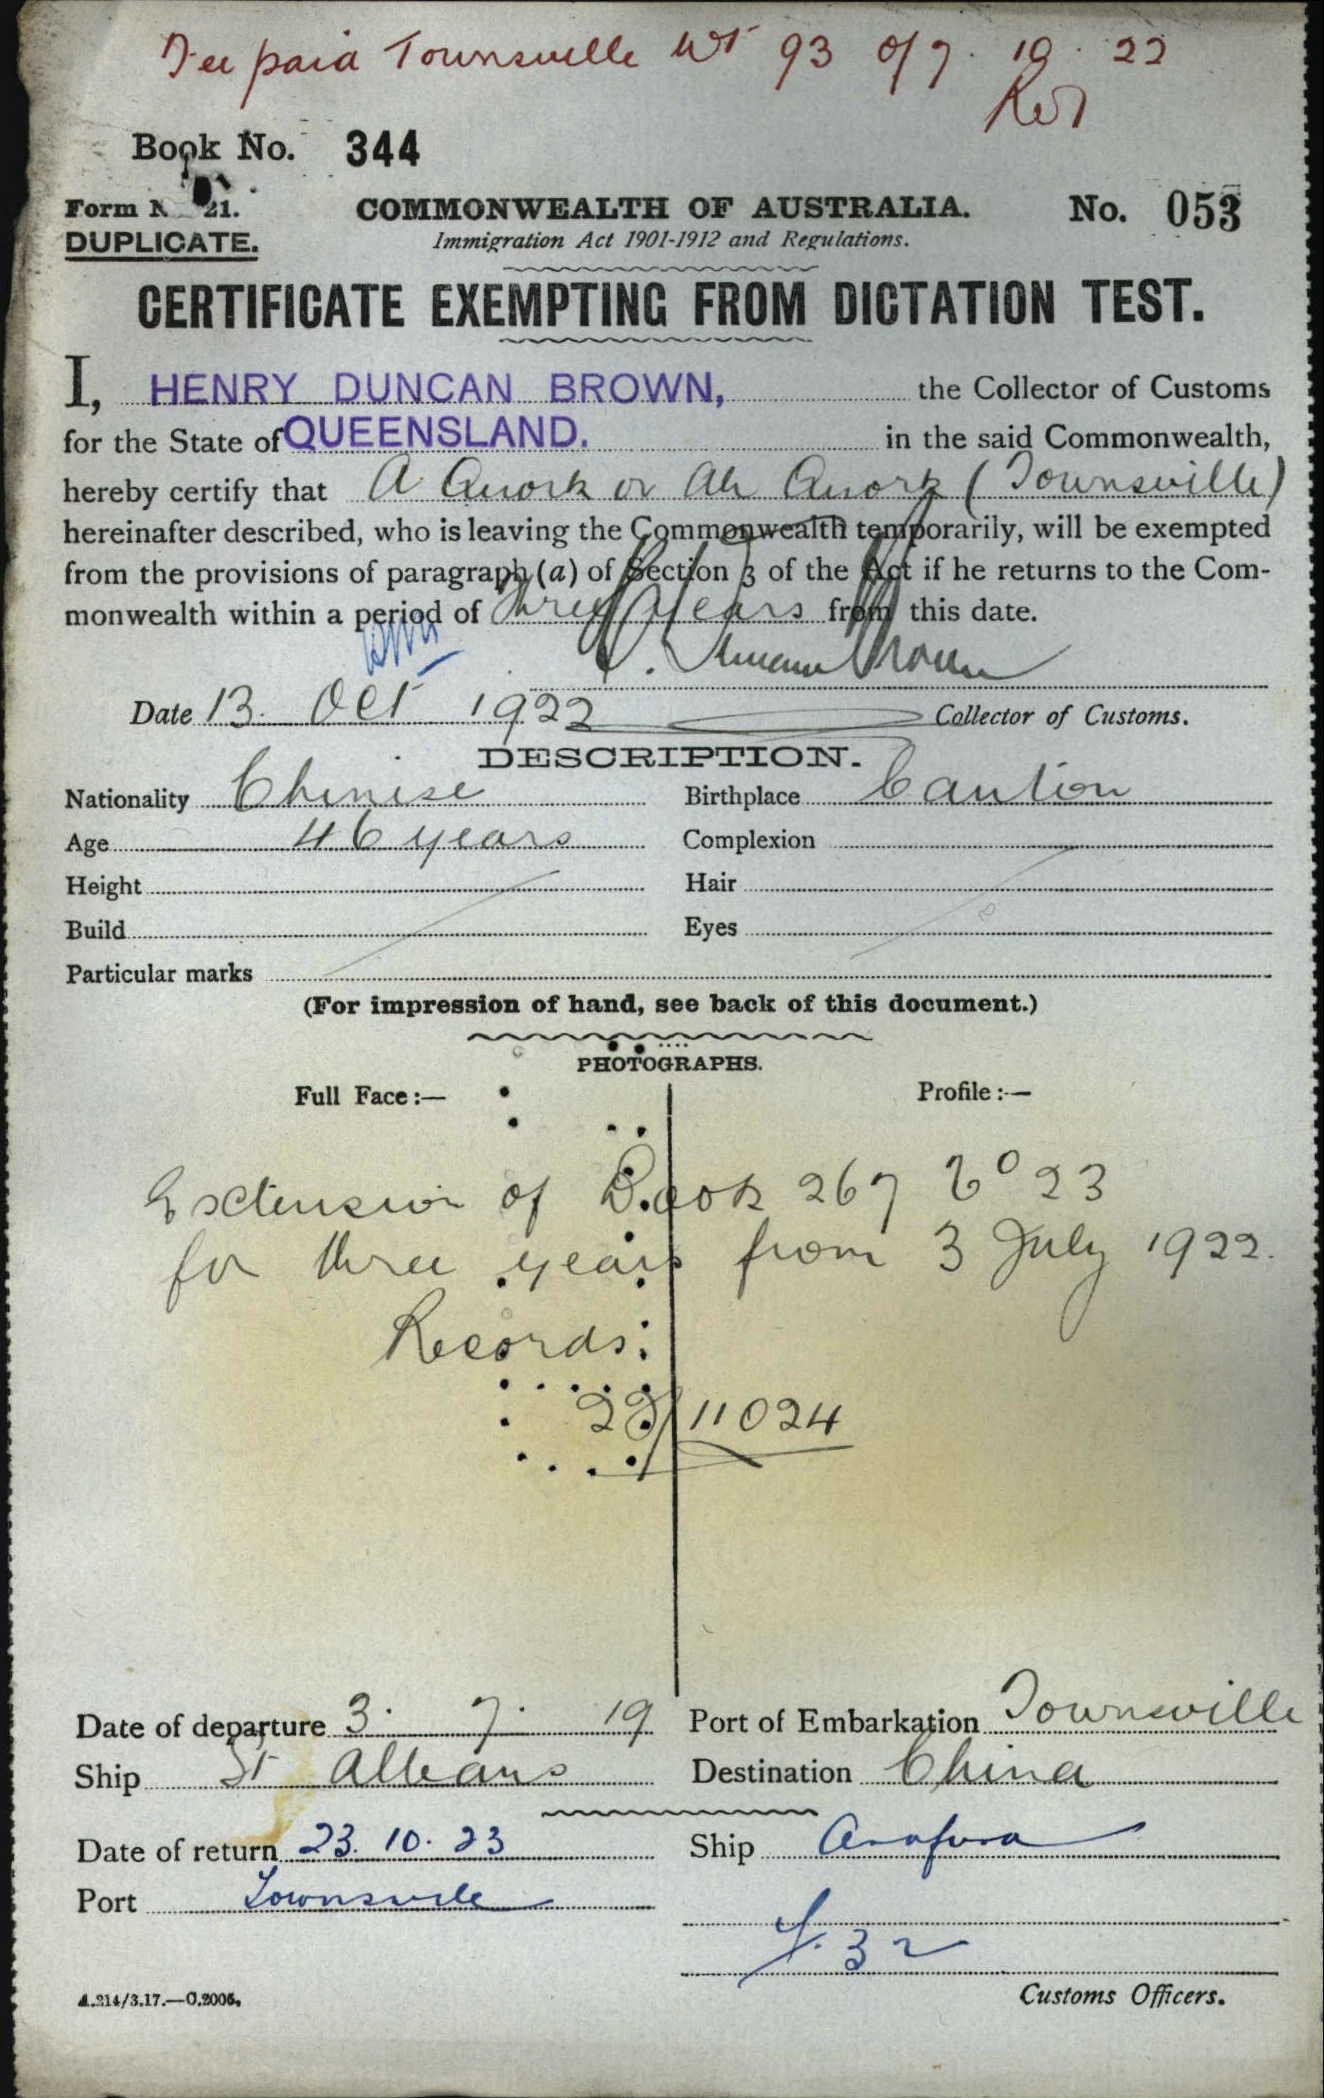 Fee paid Townsville 93 of 7. 10. 22
Book No. 344
Form N 21.
DUPLICATE.
COMMONWEALTH OF AUSTRALIA.
No. 053
Immigration Act 1901-1912 and Regulations.
CERTIFICATE EXEMPTING FROM DICTATION TEST.
I, HENRY DUNCAN BROWN, the Collector of Customs
for the State of QUEENSLAND. in the said Commonwealth,
hereby certify that A Quork or Ah Quork (Townsville)
hereinafter described, who is leaving the Commonwealth temporarily, will be exempted
from the provisions of paragraph (a) of Section 3 of the Act if he returns to the Com-
monwealth within a period of Three Years from this date.
H. Duncan Brown
Date 13. Oct 1922 Collector of Customs.
DESCRIPTION.
Nationality Chinese Birthplace Canton
Age 46 years Complexion
Height Hair
Build Eyes
Particular marks
(For impression of hand, see back of this document.)
PHOTOGRAPHS.
Full Face :— Profile :—
Extension of Book 267 23
for three years from 3 July 1922.
Records:
22/11024
Date of departure 3. 7. 19 Port of Embarkation Townsville
Ship St Albans Destination China
Date of return 23. 10. 23 Ship Arafura
Port Townsville
32
A.214/3.17.—C.2005.
Customs Officers.